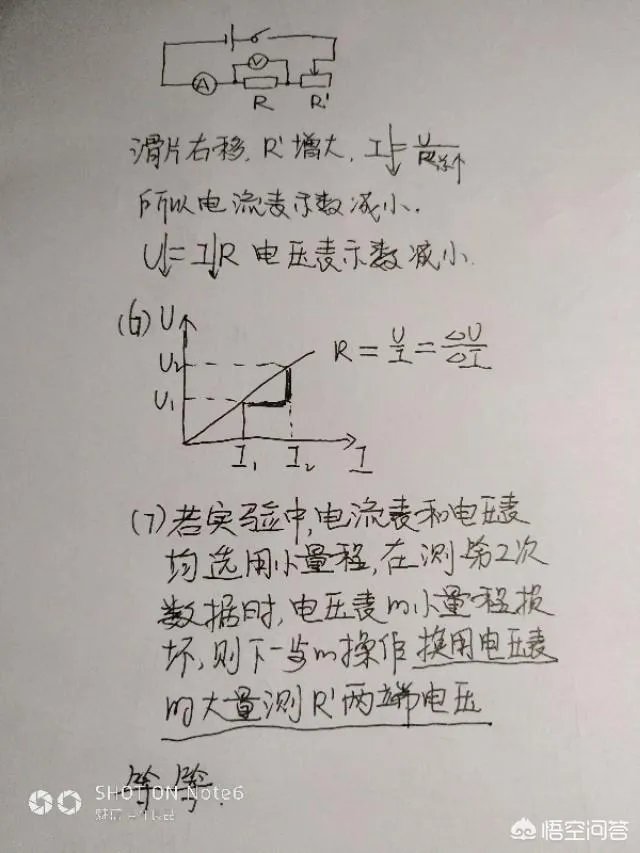 V
A
R
R'
滑片右移，R'增大，I↓=U/R总↑
所以电流表示数减小．
U↓=I↓R 电压表示数减小
(6) U
U₂
U₁
I₁ I₂ I
R=U/I=△U/△I
(7)若实验中，电流表和电压表
均选用小量程，在测第2次
数据时，电压表的小量程损
坏，则下一步的操作换用电压表
的大量测R'两端电压
等等．
SHOT ON Note6
悟空问答